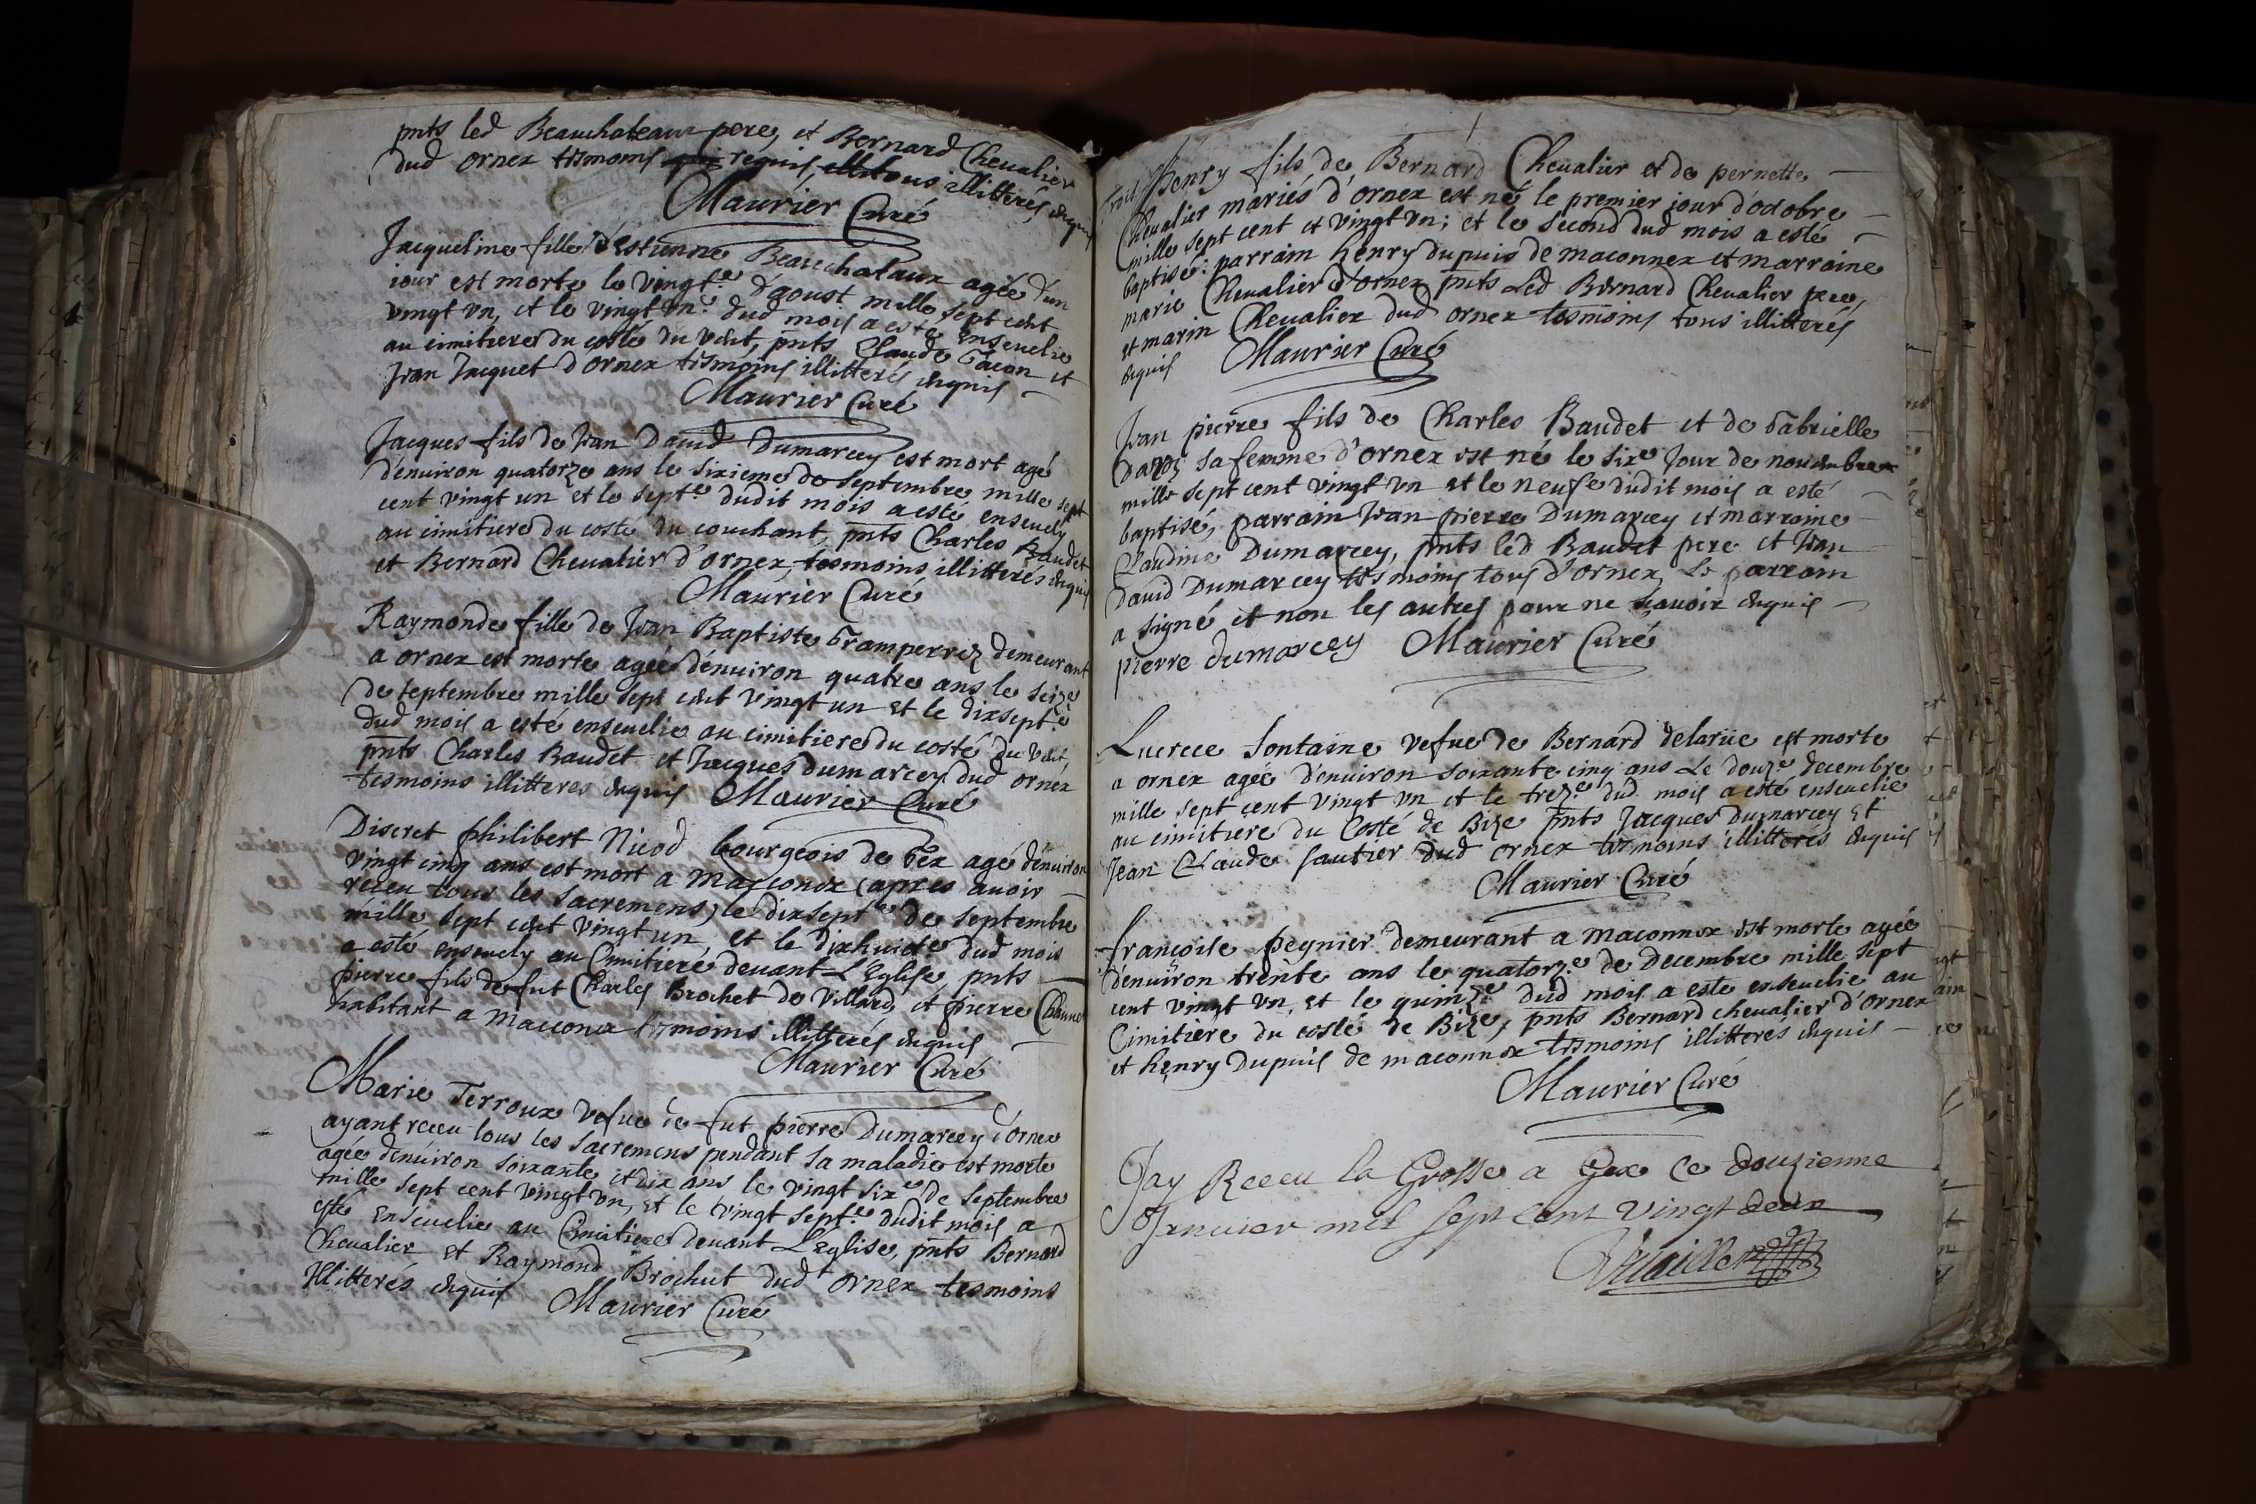 pnts led Beauchateaux pere, et Bernard Chevalier
dud ornex tesmoins requis, tous illitterés enquis
Maurier Curé
Jacqueline fille d'Estienne Beauchataux agée d'un
iour est morte le vingt.e d'aoust mille sept cent
vingt vn, et le vingt vn.e dud mois a esté ensevelie
au cimitiere du costé du vent, pnts Claude Gacon et
Jean Jacquet d'ornex tesmoins illitterés enquis
Maurier Curé
Jacques fils de Jean David Dumarcey est mort agé
d'enuiron quatorze ans le sixieme de septembre mille sept
cent vingt un et le sept.e dudit mois a esté enseuely
au cimitiere du costé du couchant, pnts Charles Baudet
et Bernard Cheualier d'ornex, tesmoins illitterés enquis
Maurier Curé
Raymonde fille de Jean Baptiste Gramperrez demeurant
a ornex est morte agée d'enuiron quatre ans le seize
de septembre mille sept cent vingt un et le dixsept.e
dud mois a esté enseuelie au cimitiere du costé du vent,
pnts Charles Baudet et Jacques dumarcey dud ornex
tesmoins illitterés enquis Maurier Curé
Discret philibert Nicod bourgeois de Gex agé d'enuiron
vingt cinq ans est mort a Maconex (apres auoir
receu tous les sacremens) le dixsept.e de septembre
mille sept cent vingt un, et le dixhuict.e dud mois
a esté enseuely au Cimitiere deuant L'Eglise pnts
pierre fils de fut Charles Brochet de Villard, et pierre
habitant a Maconex tesmoins illitterés enquis
Maurier Curé
Marie Terroux vefue de fut pierre Dumarcey d'ornex
ayant receu tous les sacremens pendant sa maladie est morte
agée d'enuiron soixante et dix ans le vingt six.e de septembre
mille sept cent vingt vn, et le vingt sept.e dudit mois a
esté enseuelie au Cimitiere deuant L'Eglise, pnts Bernard
Cheualier et Raymond Brochut dud ornex tesmoins
Illitterés enquis Maurier Curé
Henry fils de Bernard Cheualier et de pernette
Cheualier mariés d'ornex est né le premier jour d'octobre
mille sept cent et vingt vn; et le second dud mois a esté
baptisé: parrain henry dupuis de maconnex et marraine
marie Cheualier d'ornex pnts Led Bernard Cheualier pere,
et marin Cheualier dud ornex tesmoins tous illitterés
enquis Maurier Curé
Jean pierre fils de Charles Baudet et de Gabrielle
sa femme d'ornex est né le six.e Jour de nouembre
mille sept cent vingt vn et le neuf.e dudit mois a esté
baptisé, parrain Jean pierre Dumarcey et marraine
Claudine Dumarcey, pnts led Baudet pere et Jean
david Dumarcey tesmoins tous d'ornex, Le parrain
a signé et non les autres pour ne sçauoir enquis
pierre dumarcey Maurier Curé
Lucrece fontaine vefue de Bernard delarüe est morte
a ornex agée d'enuiron soixante cinq ans Le douz.e decembre
mille sept cent vingt vn et le trez.e dud mois a esté enseuelie
au cimitiere du Costé de Bize pnts Jacques Dumarcey Et
Jean Claude sautier dud ornex tesmoins illitterés enquis
Maurier Curé
francoise peynier demeurant a maconnex est morte agée
d'enuiron trente ans le quatorz.e de decembre mille sept
cent vingt vn, et le quinz.e dud mois a esté enseuelie au
Cimitiere du costé de Bize, pnts Bernard cheualier d'ornex
et henry Dupuis de maconnex tesmoins illitterés enquis
Maurier Curé
Jay Receu la Grosse a Gex ce douzienne
Januier mil sept cent vingt deux